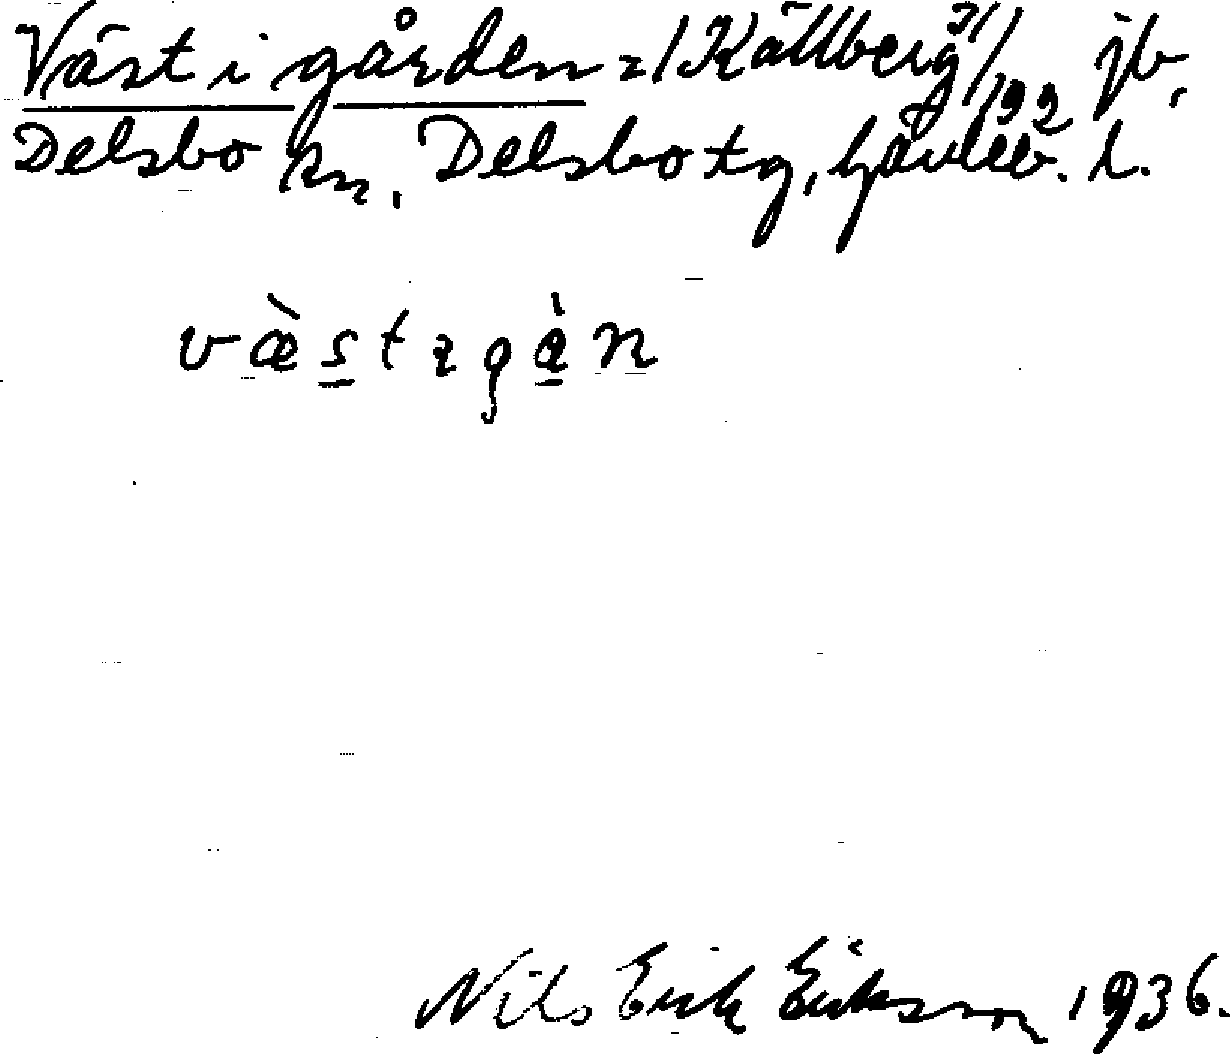 Väst i gården = /Källberg 3/ 192 jb,
Delsbo sn, Delsbo tg, Gävleb. l.
væ̀stɿgàn
Nils Erik Eriksson 1936.